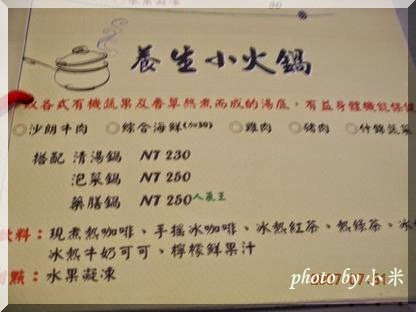 養生小火鍋
以各式有機蔬果及香草熬煮而成的湯底，有益身體機能
◎沙朗牛肉 ◎綜合海鮮(加30) ◎雞肉 ◎豬肉 ◎什錦蔬菜
搭配 清湯鍋 NT 230
泡菜鍋 NT 250
藥膳鍋 NT 250 人蔘王
飲料：現煮熱咖啡、手搖冰咖啡、冰熱紅茶、熱綠茶、冰
冰熱牛奶可可、檸檬鮮果汁
點：水果凝凍
photo by 小米